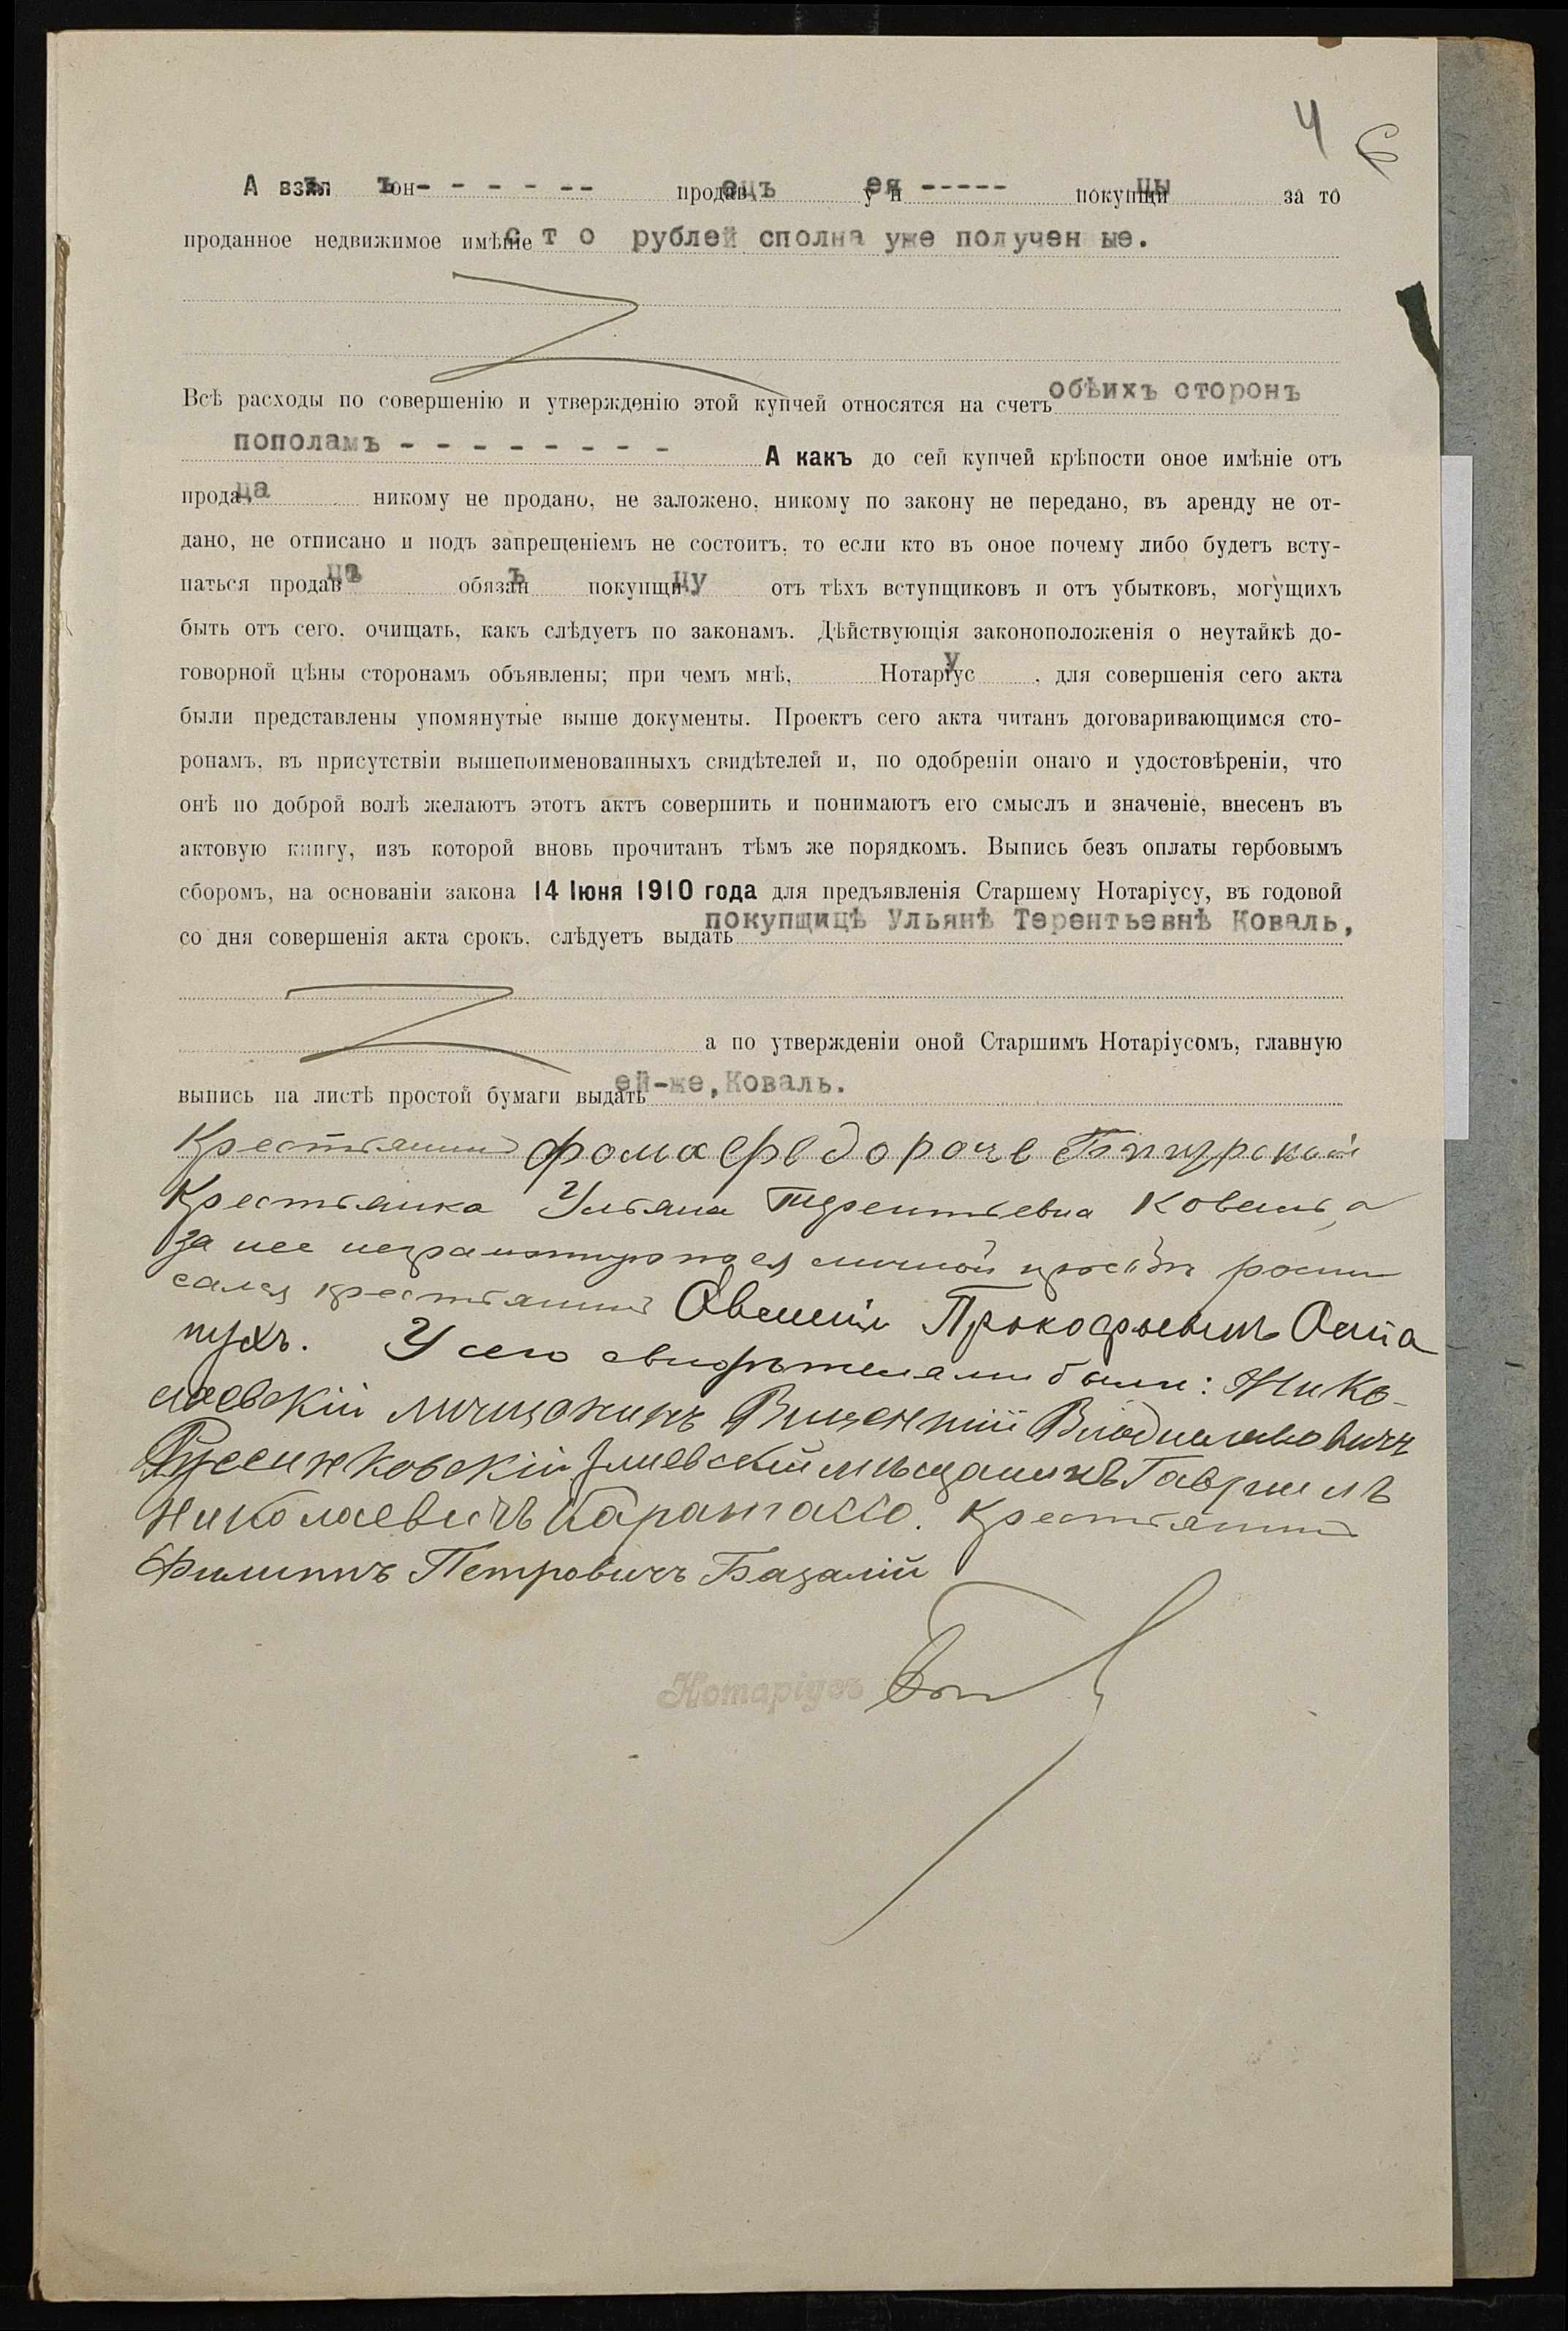 4 6
А взялъ онъ - - - - - -- продавецъ у нея ----- покупщицы за то
проданное недвижимое имѣніе сто рублей сполна уже получен ые.
Всѣ расходы по совершенію и утвержденію этой купчей относятся на счетъ обѣихъ сторонъ
пополамъ - - - - - - - - А какъ до сей купчей крѣпости оное имѣніе отъ
продавца никому не продано, не заложено, никому по закону не передано, въ аренду не от-
дано, не отписано и подъ запрещеніемъ не состоитъ, то если кто въ оное почему либо будетъ всту-
паться продавцъ обязанъ покупщицу отъ тѣхъ вступщиковъ и отъ убытковъ, могущихъ
быть отъ сего, очищать, какъ слѣдуетъ по законамъ. Дѣйствующія законоположенія о неутайкѣ до-
говорной цѣны сторонамъ объявлены; при чемъ мнѣ, Нотаріусу, для совершенія сего акта
были представлены упомянутые выше документы. Проектъ сего акта читанъ договаривающимся сто-
ронамъ, въ присутствіи вышепоименованныхъ свидѣтелей и, по одобреніи онаго и удостовѣреніи, что
онѣ по доброй волѣ желаютъ этотъ актъ совершить и понимаютъ его смыслъ и значеніе, внесенъ въ
актовую книгу, изъ которой вновь прочитанъ тѣмъ же порядкомъ. Выпись безъ оплаты гербовымъ
сборомъ, на основаніи закона 14 Іюня 1910 года для предъявленія Старшему Нотаріусу, въ годовой
со дня совершенія акта срокъ, слѣдуетъ выдать покупщицѣ Ульянѣ Терентьевнѣ Коваль,
а по утвержденіи оной Старшимъ Нотаріусомъ, главную
выпись на листѣ простой бумаги выдать ей-же, Коваль.
Крестьянинъ Фома Федороче
Крестьянка Ульяна Терентьевна Коваль, а
за нее неграмотную по ея личной просьбѣ роспи
сался крестьянинъ Прокофьевичъ Остa
пухъ. У сего свидѣтелями были: Нико-
лаевскій мищанинъ Вицентий Владиславовичъ
Русецковскій Змиевскій мѣщанинъ Гавріилъ
Николаевичъ Крестьянинъ
Филиппъ Петровичъ Базалій
Нотаріусъ